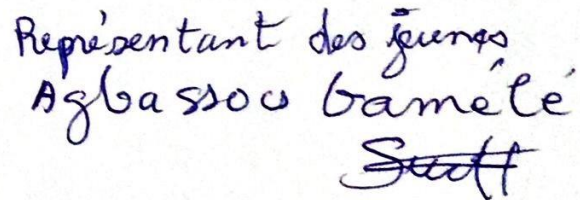 Représentant des jeunes
Agbassou Gamélé